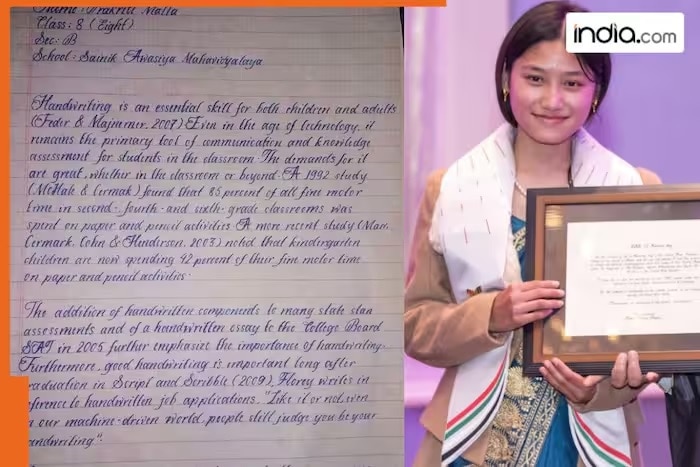 Name: Prakriti Malla
Class: 8 (Eight)
Sec: B
School: Sainik Awasiya Mahavidyalaya
Handwriting is an essential skill for both children and adults
(Feder & Majnemer, 2007) Even in the age of technology, it
remains the primary tool of communication and knowledge
assessment for students in the classroom The demands for it
are great, whether in the classroom or beyond A 1992 study
(McHale & Cermak) found that 85 percent of all fine motor
time in second- fourth- and sixth- grade classrooms was
spent on paper and pencil activities A more recent study (Marr,
Cermark, Cohn & Henderson, 2003) noted that kindergarten
children are now spending 42 percent of their fine motor time
on paper and pencil activities.
The addition of handwritten components to many state stan
assessments and of a handwritten essay to the College Board
SAT in 2005 further emphasize the importance of handwriting.
Furthermore, good handwriting is important long after
raduation in Script and Scribble (2009), Florey writes in
eference to handwritten job applications, "Like it or not, even
n our machine-driven world, people still judge you by your
andwriting."
india.com